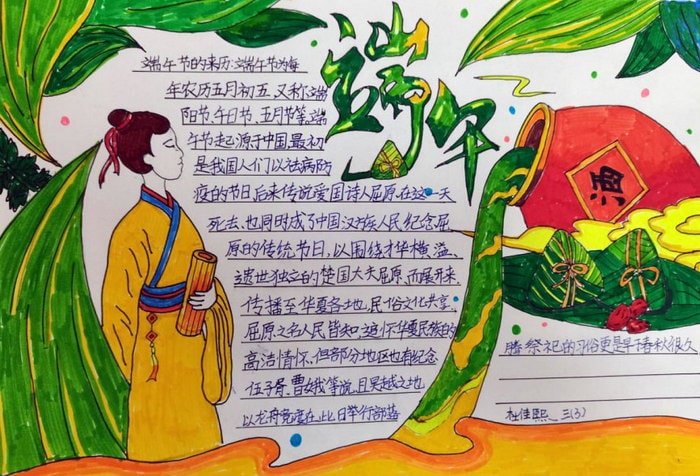 端午
端午节的来历:端午节为每
年农历五月初五,又称端
阳节、午日节、五月节等。端
午节起源于中国,最初
是我国人们以祛病防
疫的节日,后来传说爱国诗人屈原在这一天
死去,也同时成了中国汉族人民纪念屈
原的传统节日,以围绕才华横溢、
遗世独立的楚国大夫屈原,而展开来,
传播至华夏各地,民俗文化共享,
屈原之名人民皆知,追怀华夏民族的
高洁情怀。但部分地区也有纪念
伍子胥、曹娥等说,且吴越之地
以龙舟竞度在此日举行部落
酒
腾祭祀的习俗更是早于春秋很久
杜佳熙 三(3)